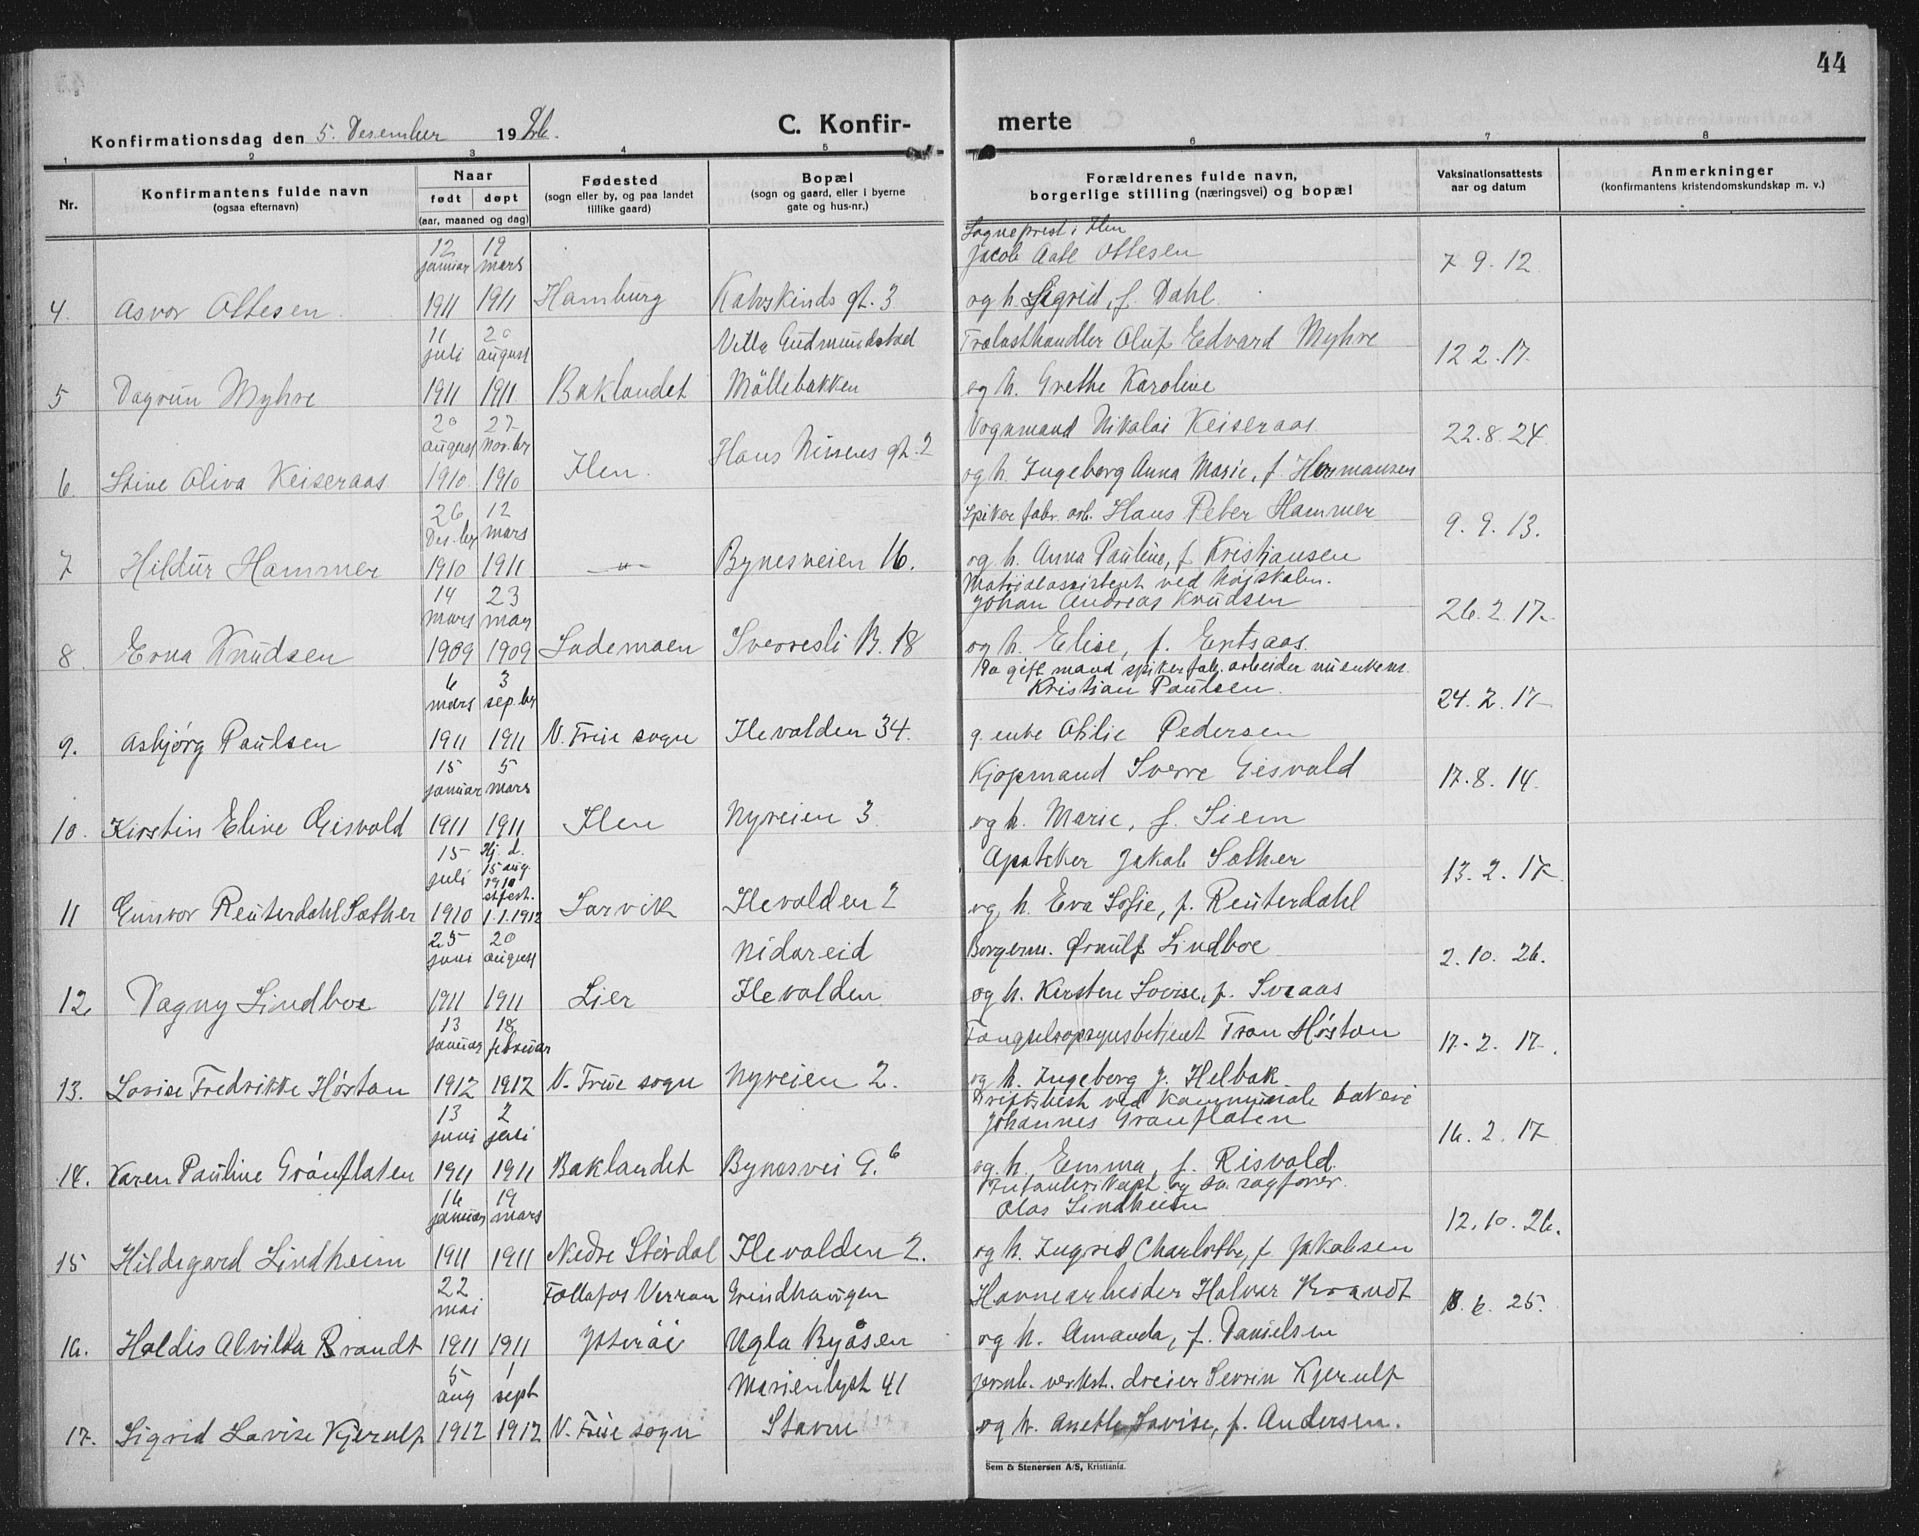 44
Konfirmationsdag den 5. Desember 1926.
C. Konfirmerte
1 2 3 4 5 6 7 8
Nr.
Konfirmantens fulde navn
(ogsaa efternavn)
Naar
født døpt
(aar, maaned og dag)
Fødested
(sogn eller by, og paa landet
tillike gaard)
Bopæl
(sogn og gaard, eller i byerne
gate og hus-nr.)
Forældrenes fulde navn,
borgerlige stilling (næringsvei) og bopæl
Vaksinationsattests
aar og datum
Anmerkninger
(konfirmantens kristendomskundskap m. v.)
12 januar 19 mars Sogneprest i Ilen
Jacob Aall Ottesen 7.9.12.
4. Asvor Ottesen. 1911 1911 Hamburg gt. 3 og h. Sigrid, f. Dahl.
11 juli 20 august Villa Gudmundstad Trælasthandler Oluf Edvard Myhre 12.2.17.
5 Dagrun Myhre 1911 1911 Baklandet Möllebakken og h. Grethe Karoline
20 august 27 nov.br Vognmand Nikolai Keiseraas 22.8.24.
6. Stine Oliva Keiseraas 1910 1910 Ilen. Hans Nissens gt. 2 og h. Ingeborg Anna Marie, f. Hermansen
26 Des.br 12 mars Spiker fabr. arb. Hans Peter Hammer 9.9.13.
7 Hildur Hammer 1910 1911 —"— Bynesveien 16. og h. Anna Pauline, f. Kristjansen
14 mars 23 may Matrialassistent ved højskolen.
Johan Andreas Knudsen 26.2.17.
8. Erna Knudsen 1909 1909 Lademoen Sverresli B. 18 og h. Elise, f. Entsaas.
6 mars 3 sep.br gift mand spikerfab. arbeider
Kristian Paulsen. 24.2.17
9. Asbjørg Paulsen 1911 1911 V. Frue sogn Ilevolden 34. Otilie Pedersen
15 januar 5 mars Kjøpmand Sverre Gisvold 17.8.14.
10. Kirstin Eline Gisvold 1911 1911 Ilen Nyveien 3 og h. Marie, f. Siem
15 juli Hj. d. 15 aug. 1910 stfest. Apoteker Jakob Sæther 13.2.17.
11 Gunvor Reuterdahl Sæther 1910 1.1.1912 Larvik Ilevolden 2 og h. Eva Sofie, f. Reuterdahl
25 juni 20 august Nidareid Borgerm. Ørnulf Lindboe 2.10.26.
12. Dagny Lindboe 1911 1911 Lier Ilevolden og h. Kirsten Lovise, f. Sveaas
13 januar 18 februar Fængselsopsynsbetjent Tron Høstan 17.2.17.
13. Lovise Fredrikke Høstan 1912 1912 V. Frue sogn Nyveien 2. og h. Ingeborg f. Helbak
13 juni 2 juli Driftsbest. ved kommunale bakeri
Johannes Grønflaten 16.2.17
14. Karen Pauline Grønflaten 1911 1911 Baklandet Bynesvei G. 6 og h. Emma, f. Risvold.
16 januar 19 mars Infanterikapt. og sagfører.
Olas Lindheim 12.10.26.
15 Hildegard Lindheim 1911 1911 Nedre Stjørdal Ilevolden 2. og h. Ingrid Charlotte, f. Jakobsen
22 mai Follafos Verran Grindhaugen Havnearbeider Halvar Brandt 8.6.25.
16. Haldis Alvilda Brandt 1911 1911 Ytterøi Ugla Byåsen og h. Amanda, f. Danielsen
5 aug 1 sept Marienlyst 41 jernb. verkst. dreier Sevrin Kjerulf
17. Sigrid Lovise Kjerulf 1912 1912 V. Frue sogn Stavn og h. Anette Lovise, f. Andersen.
Sem & Stenersen A/S, Kristiania.